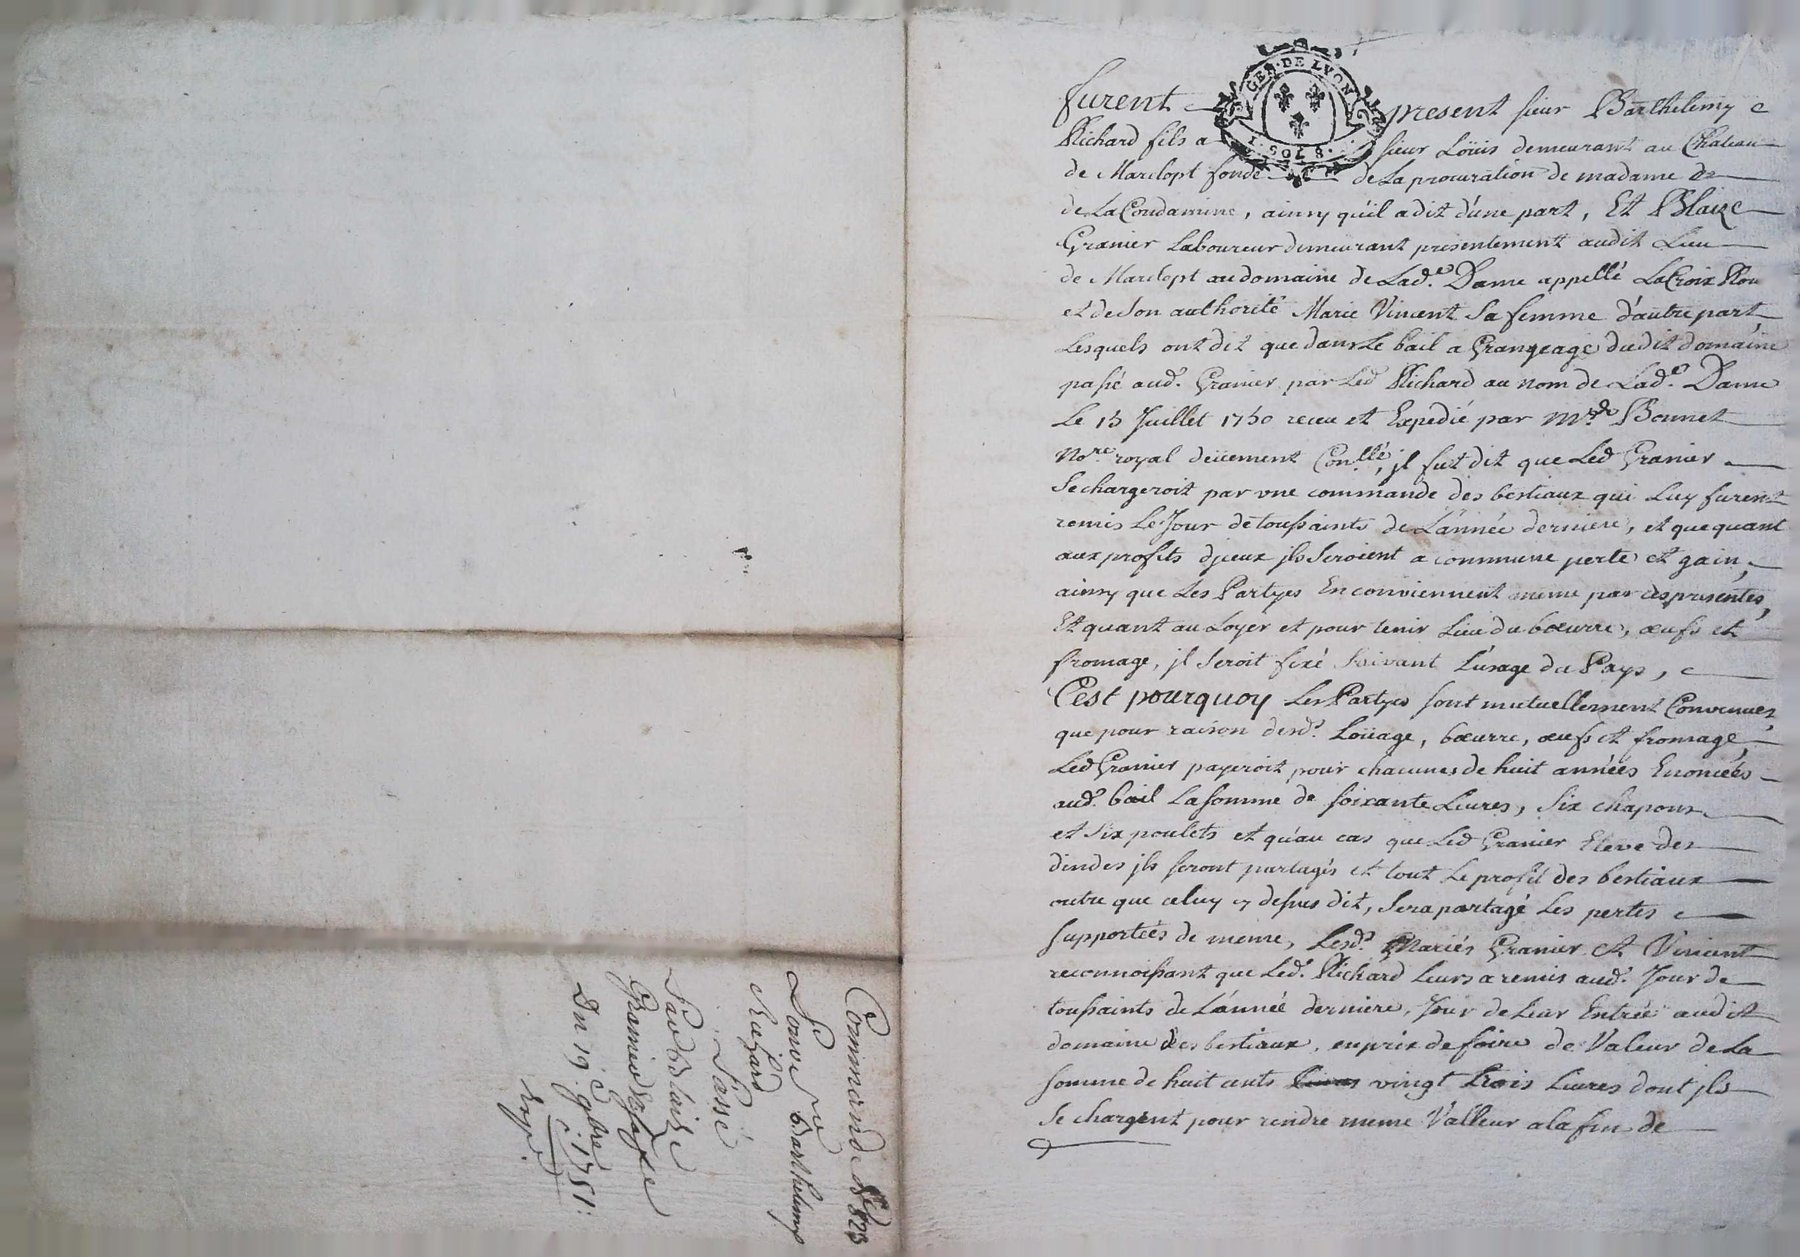 GEN · DE LYON
1 · SOL 8 ·
furent present sieur Barthelemy
Richard fils a sieur Loüis demeurant au Chateau
de Marclopt fondé de La procuration de madame de
de La Condamine, ainsy qu'il a dit d'une part, Et Blaize
Granier Laboureur demeurant presentement audit Lieu
de Marclopt au domaine de Lad.e Dame appellé LaCroix
et de son authorité Marie Vincent Sa femme d'autre part
Lesquels ont dit que dans Le bail a Grangeage dudit domaine
passé aud. Granier par Led Richard au nom de Lad.e Dame
Le 13 Juillet 1750 receu et Expedié par Bonnet
No.re royal deüement Con.llé, jl fut dit que Led Granier
Se chargeroit par vne commande des bestiaux qui Luy furent
remis Le Jour de toussaints de L'année derniere, et que quant
aux profits d'jceux jls Seroient a commune perte et gain,
ainsy que Les Partyes En conviennent meme par ces presentes,
Et quant au Loyer et pour tenir Lieu du bœurre, œufs et
fromage, jl Seroit fixé Suivant L'usage du Pays,
C'est pourquoy Les Partyes sont mutuellement Convenues
que pour raison desd. Loüage, bœurre, œufs et fromage,
Led Granier payeroit pour chacunes de huit années Enoncées
aud. bail La somme de soixante Livres, Six chapons
et Six poulets et qu'au cas que Led Granier Eleve des
dindes jls seront partagés et tout Le profit des bestiaux
outre que celuy cy dessus dit, Sera partagé Les pertes
supportées de meme, Lesd. Mariés Granier et Vincent
reconnoissant que Led. Richard Leurs a remis aud. Jour de
toussaints de L'année derniere, Jour de Leur Entrée audit
domaine des bestiaux, au prix de foire de Valeur de La
somme de huit cents vingt trois Livres dont jls
Se chargent pour rendre meme Valleur a la fin de
Commande de 823
Pour Sr Barthelemy
Richard
Passé
Par Blaize
Granier Sa fe
Du 19 9bre 1751